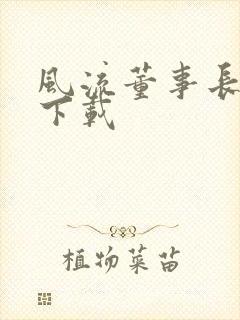 風流董事長
下載
植物菜苗